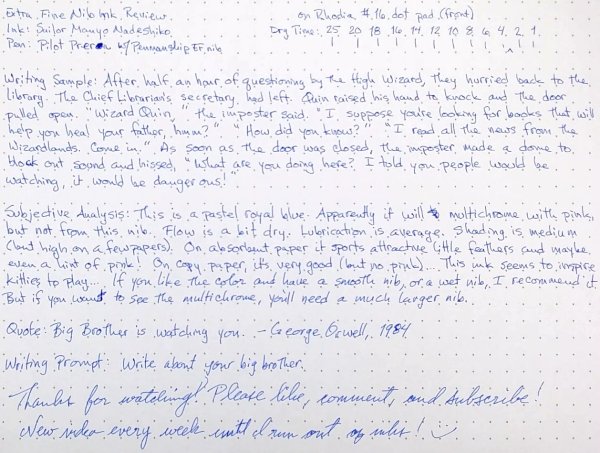 Extra Fine Nib Ink Review on Rhodia #16 dot pad (front)
Ink: Sailor Manyo Nadeshiko Dry Time: 25 20 18 16 14 12 10 8 6 4 2 1
Pen: Pilot Prera w/ Penmanship EF nib
Writing Sample: After half an hour of questioning by the High Wizard, they hurried back to the
library. The Chief Librarian's secretary had left. Quin raised his hand to knock and the door
pulled open. "Wizard Quin," the imposter said. "I suppose you're looking for books that will
help you heal your father, hmm?" "How did you know?" "I read all the news from the
Wizardlands. Come in." As soon as the door was closed, the imposter made a dome to
block out sound and hissed, "What are you doing here? I told you people would be
watching, it would be dangerous!"
Subjective Analysis: This is a pastel royal blue. Apparently it will multichrome with pink,
but not from this nib. Flow is a bit dry. Lubrication is average. Shading is medium
(but high on a few papers). On absorbent paper it sports attractive little feathers and maybe
even a hint of pink! On copy paper, it's very good (but no pink)... This ink seems to inspire
kitties to play... If you like the color and have a smooth nib, or a wet nib, I recommend it.
But if you want to see the multichrome, you'll need a much larger nib.
Quote: Big Brother is watching you. - George Orwell, 1984
Writing Prompt: Write about your big brother.
Thanks for watching! Please like, comment, and subscribe!
New video every week until I run out of inks!